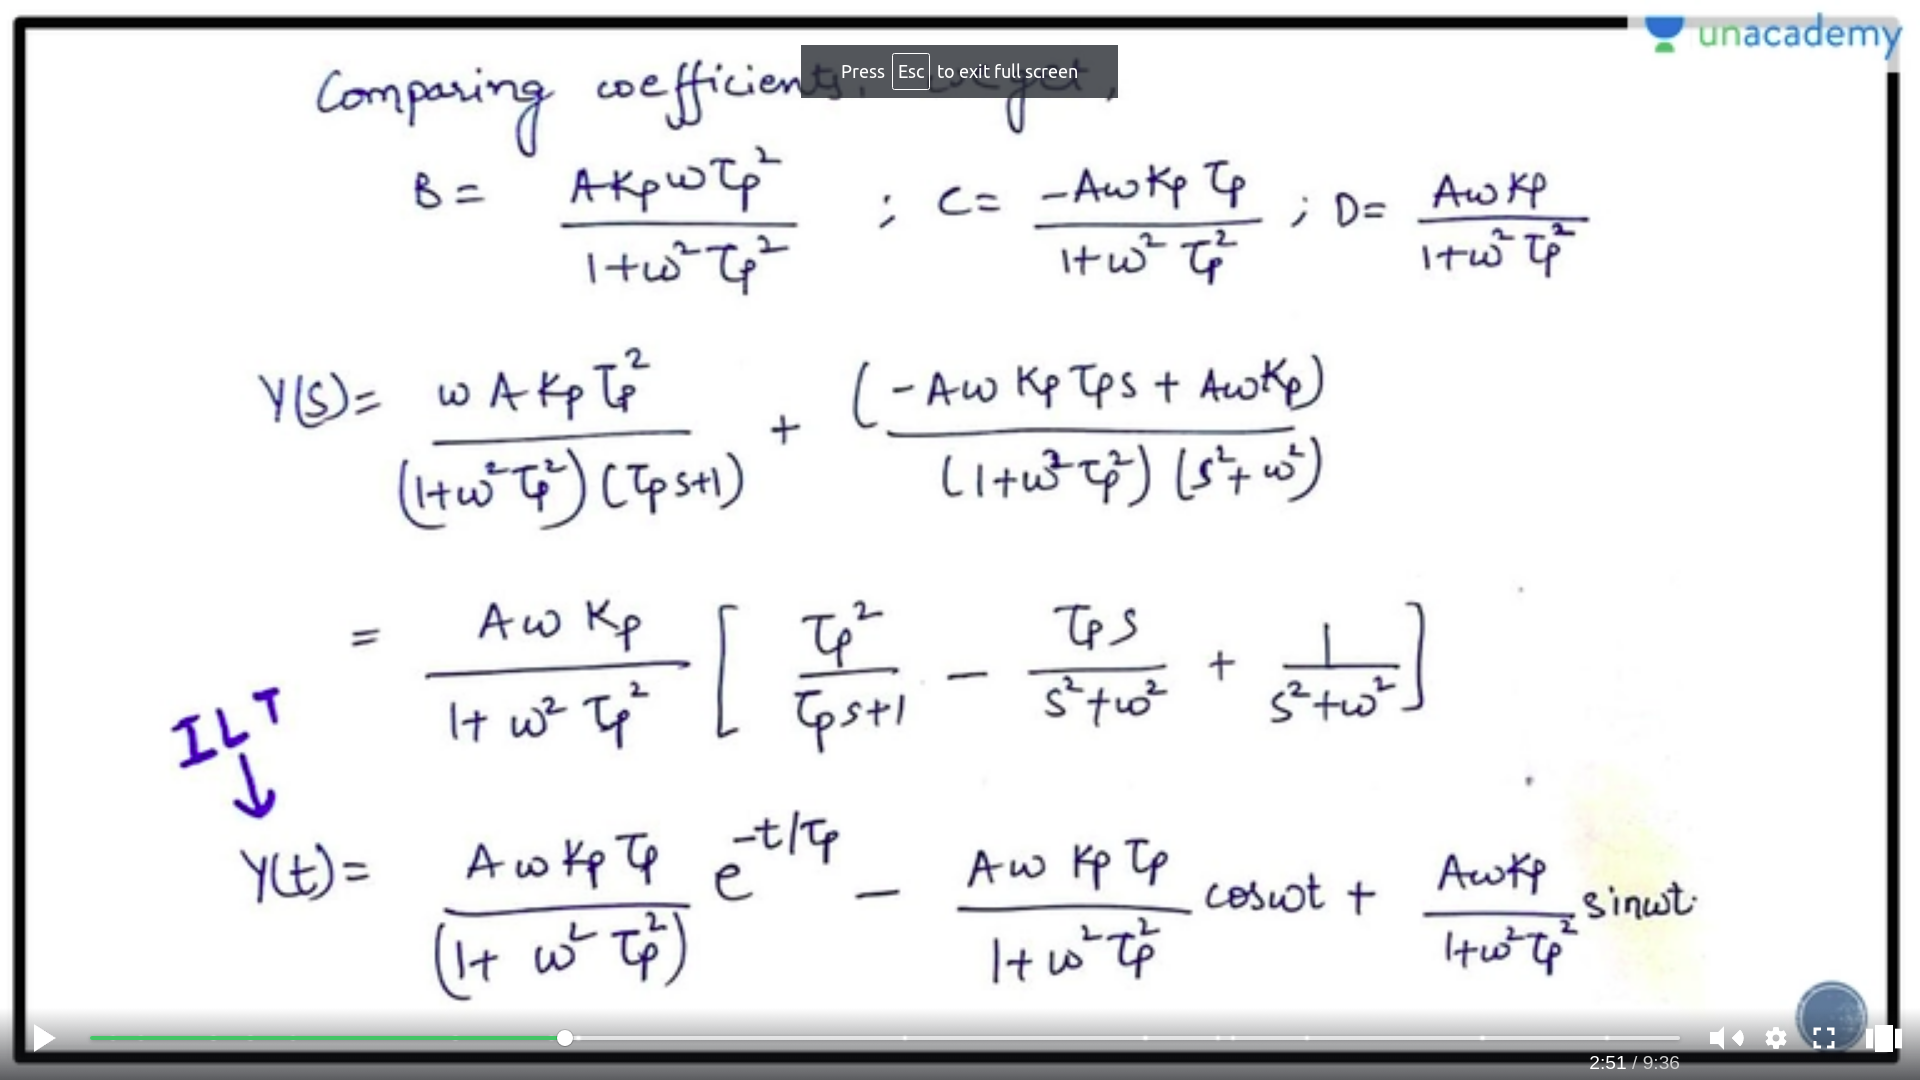 unacademy
Press Esc to exit full screen
Comparing coefficients, we get,
B = AKpωτp² / 1+ω²τp² ; C = -AωKpτp / 1+ω²τp² ; D = AωKp / 1+ω²τp²
Y(s) = ωAKpτp² / (1+ω²τp²)(τps+1) + (-AωKpτps + AωKp) / (1+ω²τp²)(s²+ω²)
= AωKp / 1+ω²τp² [ τp² / τps+1 - τps / s²+ω² + 1 / s²+ω² ]
ILT
↓
Y(t) = AωKpτp / (1+ω²τp²) e^(-t/τp) - AωKpτp / 1+ω²τp² cosωt + AωKp / 1+ω²τp² sinωt.
2:51 / 9:36